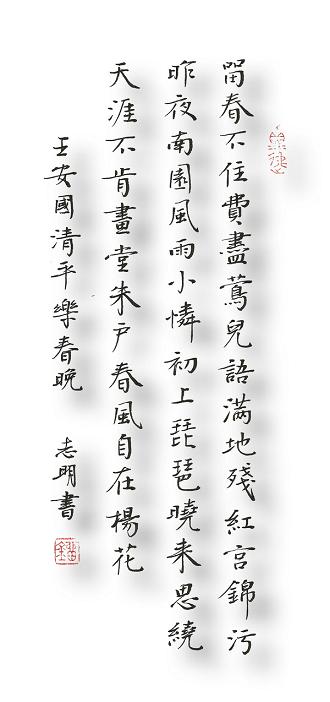 留春不住費盡鶯兒語滿地殘紅宮錦污
昨夜南園風雨小憐初上琵琶曉来思繞
天涯不肯畫堂朱戶春風自在楊花
王安國清平樂春晚 志明書